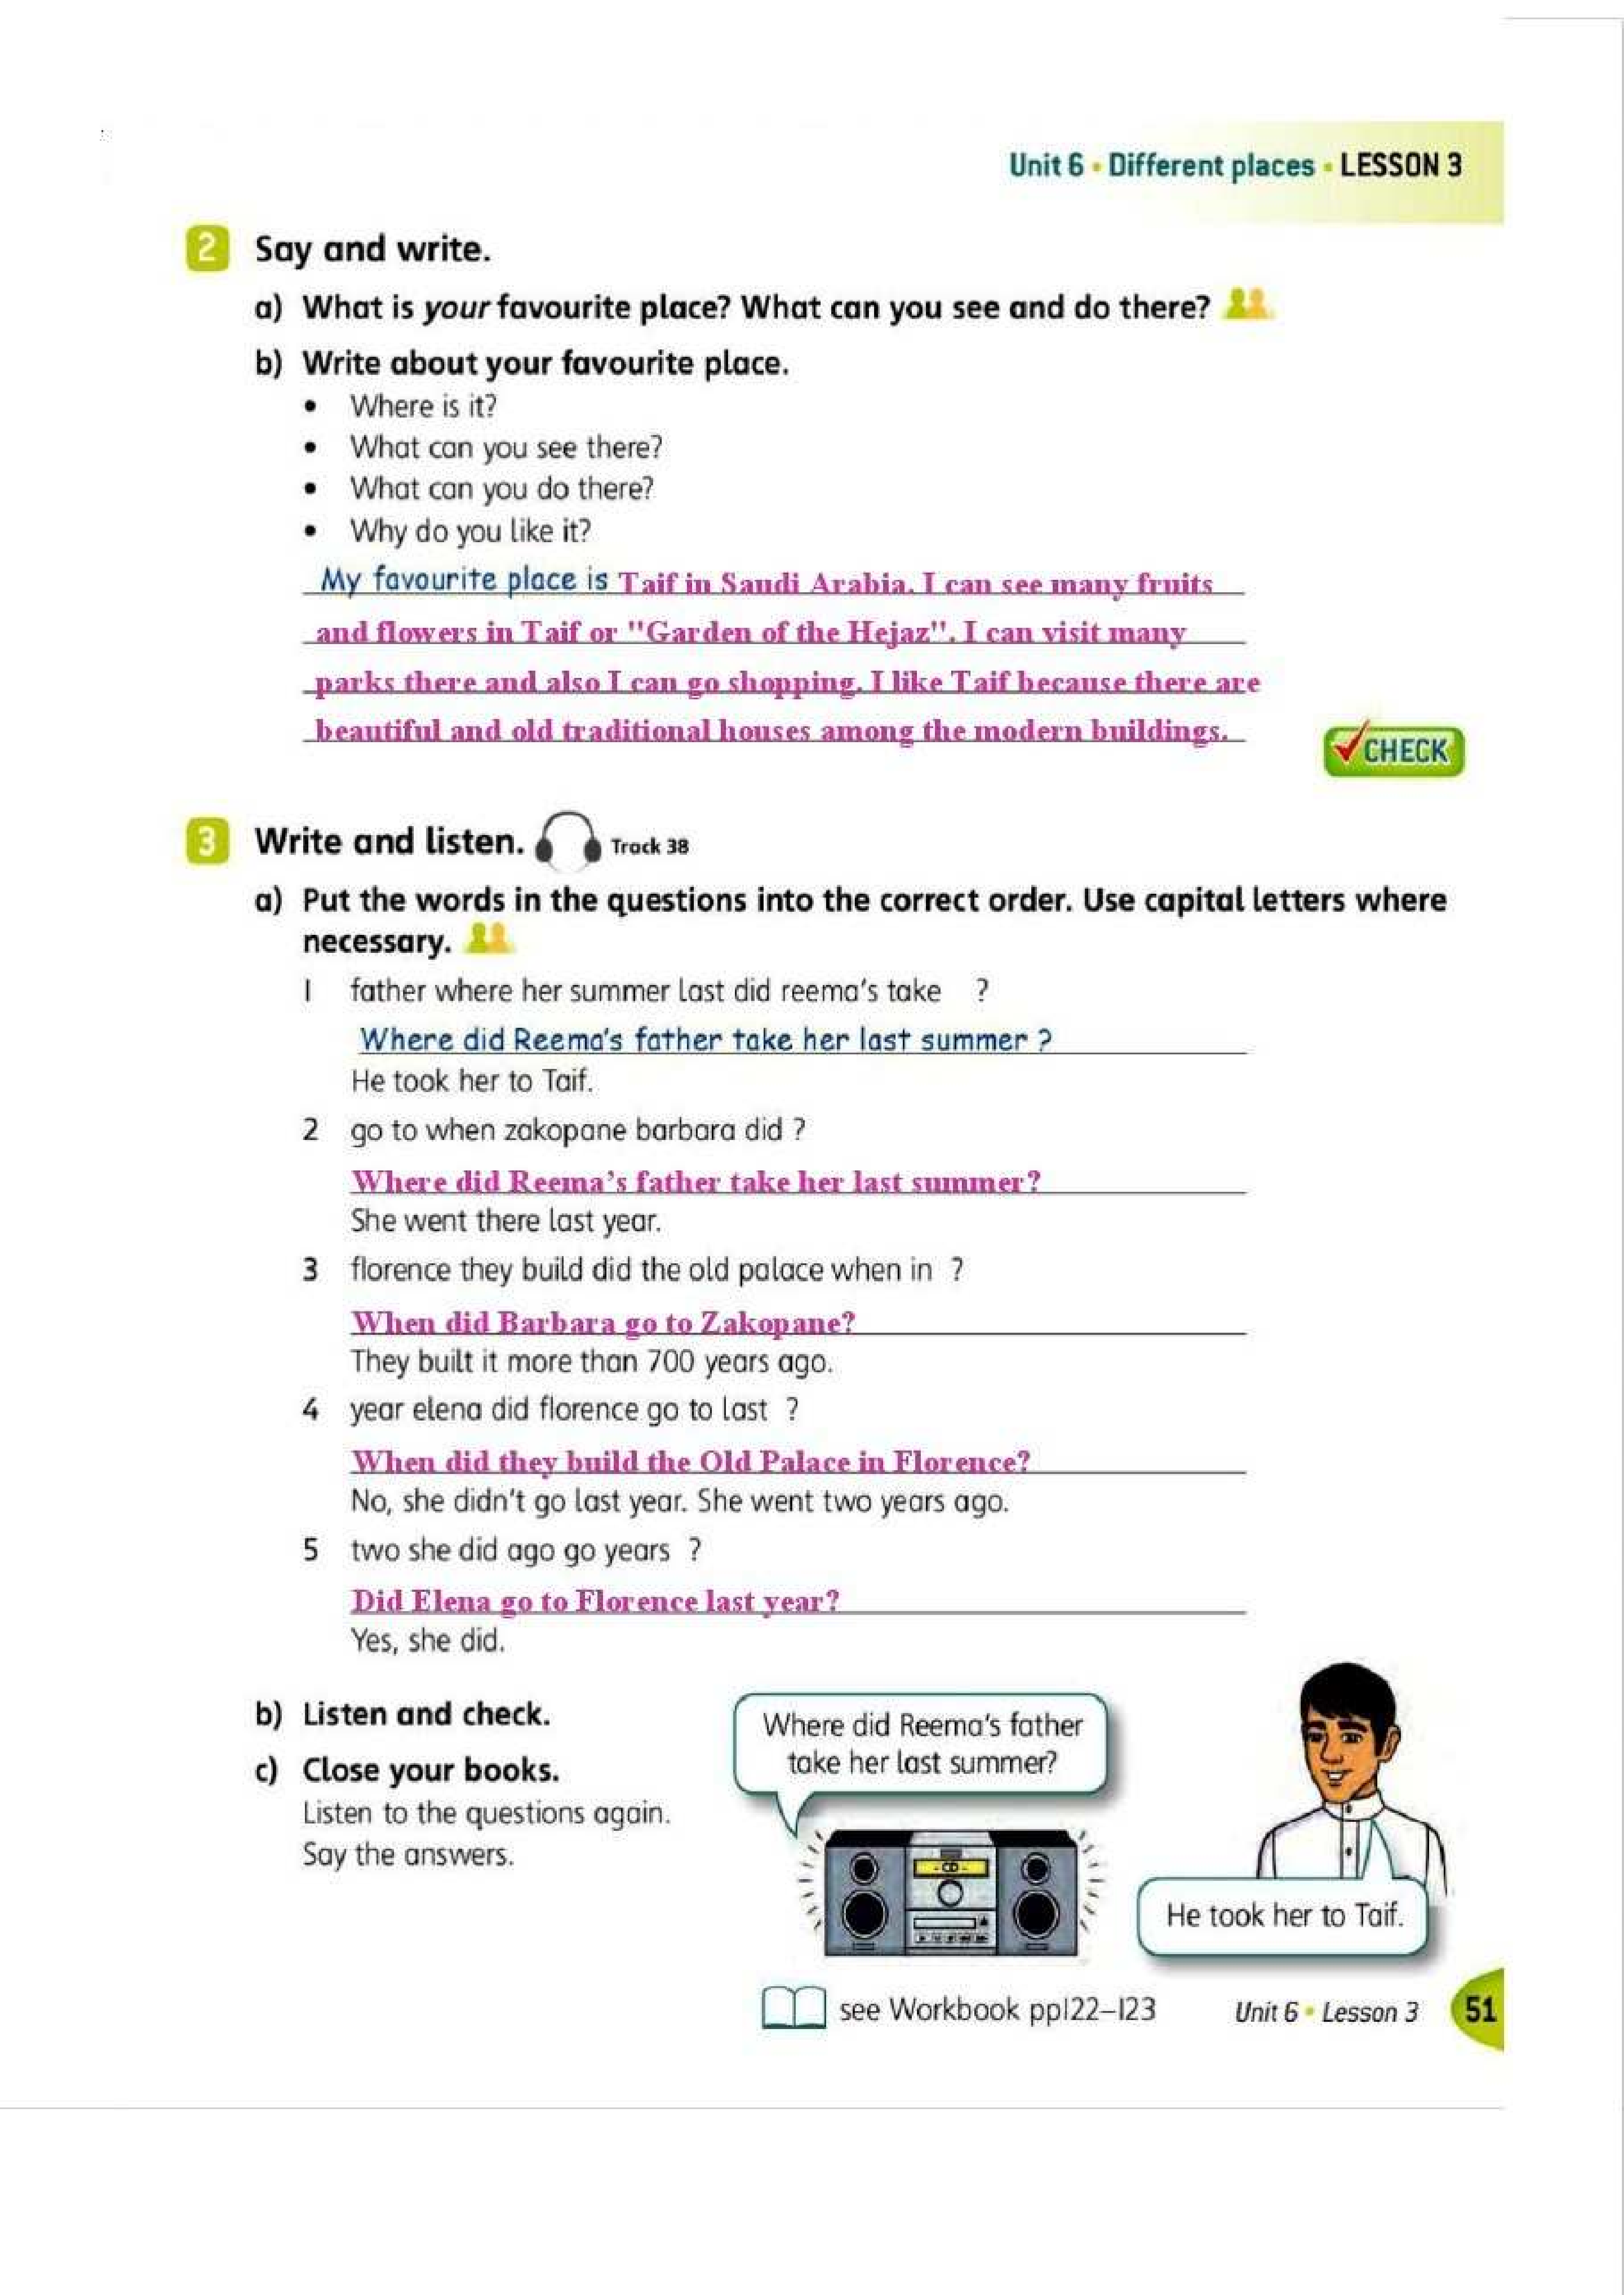 Unit 6 • Different places • LESSON 3
2 Say and write.
a) What is your favourite place? What can you see and do there?
b) Write about your favourite place.
• Where is it?
• What can you see there?
• What can you do there?
• Why do you like it?
My favourite place is Taif in Saudi Arabia. I can see many fruits
and flowers in Taif or "Garden of the Hejaz". I can visit many
parks there and also I can go shopping. I like Taif because there are
beautiful and old traditional houses among the modern buildings.
CHECK
3 Write and listen. Track 38
a) Put the words in the questions into the correct order. Use capital letters where
necessary.
1 father where her summer last did reema's take ?
Where did Reema's father take her last summer ?
He took her to Taif.
2 go to when zakopane barbara did ?
Where did Reema's father take her last summer?
She went there last year.
3 florence they build did the old palace when in ?
When did Barbara go to Zakopane?
They built it more than 700 years ago.
4 year elena did florence go to last ?
When did they build the Old Palace in Florence?
No, she didn't go last year. She went two years ago.
5 two she did ago go years ?
Did Elena go to Florence last year?
Yes, she did.
b) Listen and check.
c) Close your books.
Listen to the questions again.
Say the answers.
Where did Reema's father
take her last summer?
CD
He took her to Taif.
see Workbook pp122–123
Unit 6 • Lesson 3 51